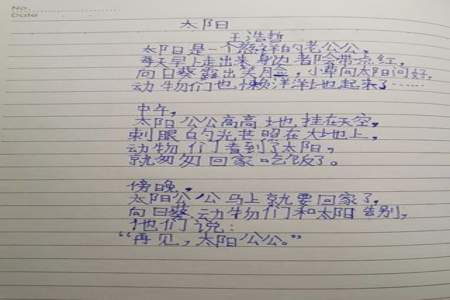 No.
Date
太阳
王浩哲
太阳是一个慈祥的老公公,
每天早上走出来身边都会带红,
向日葵露出笑脸,小草向太阳问好,
动物们也懒洋洋地起来了……
中午,
太阳公公高高地挂在天空,
刺眼的光芒照在大地上,
动物们看到了太阳,
就匆匆回家吃饭了。
傍晚,
太阳公公马上就要回家了,
向日葵、动物们和太阳告别,
他们说:
“再见,太阳公公。”